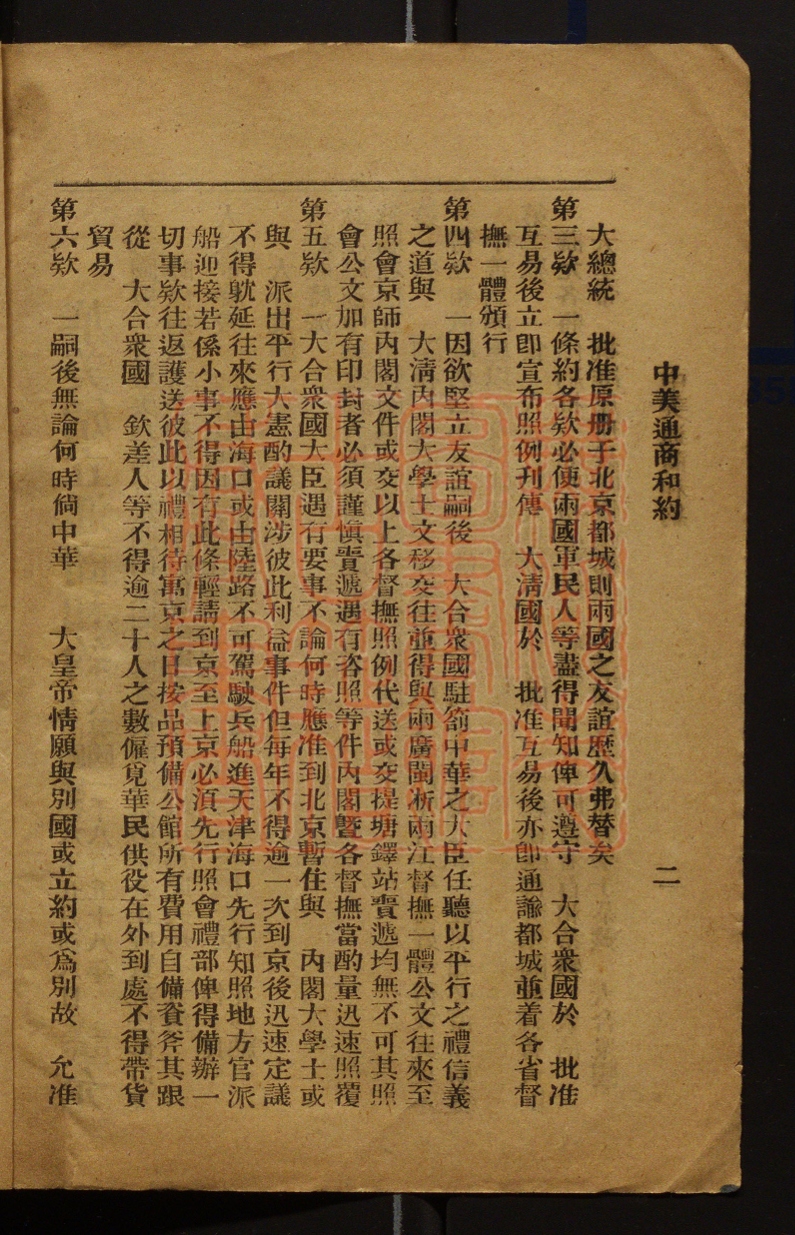 中美通商和約 二
大總統 批准原册于北京都城則兩國之友誼歷久弗替矣
第三欵 一條約各欵必使兩國軍民人等盡得聞知俾可遵守 大合衆國於 批准
互易後立卽宣布照例刊傳 大淸國於 批准互易後亦卽通諭都城並着各省督
撫一體頒行
第四欵 一因欲堅立友誼嗣後 大合衆國駐箚中華之大臣任聽以平行之禮信義
之道與 大淸內閣大學士文移交往並得與兩廣閩淅兩江督撫一體公文往來至
照會京師內閣文件或交以上各督撫照例代送或交提塘驛站賫遞均無不可其照
會公文加有印封者必須謹愼賫遞遇有咨照等件內閣曁各督撫當酌量迅速照覆
第五欵 一大合衆國大臣遇有要事不論何時應准到北京暫住與 內閣大學士或
與 派出平行大憲酌議關涉彼此利益事件但每年不得逾一次到京後迅速定議
不得躭延往來應由海口或由陸路不可駕駛兵船進天津海口先行知照地方官派
船迎接若係小事不得因有此條輕請到京至上京必須先行照會禮部俾得備辦一
切事欵往返護送彼此以禮相待寓京之日按品預備公館所有費用自備資斧其跟
從 大合衆國 欽差人等不得逾二十人之數僱覓華民供役在外到處不得帶貨
貿易
第六欵 一嗣後無論何時倘中華 大皇帝情願與別國或立約或爲別故 允准